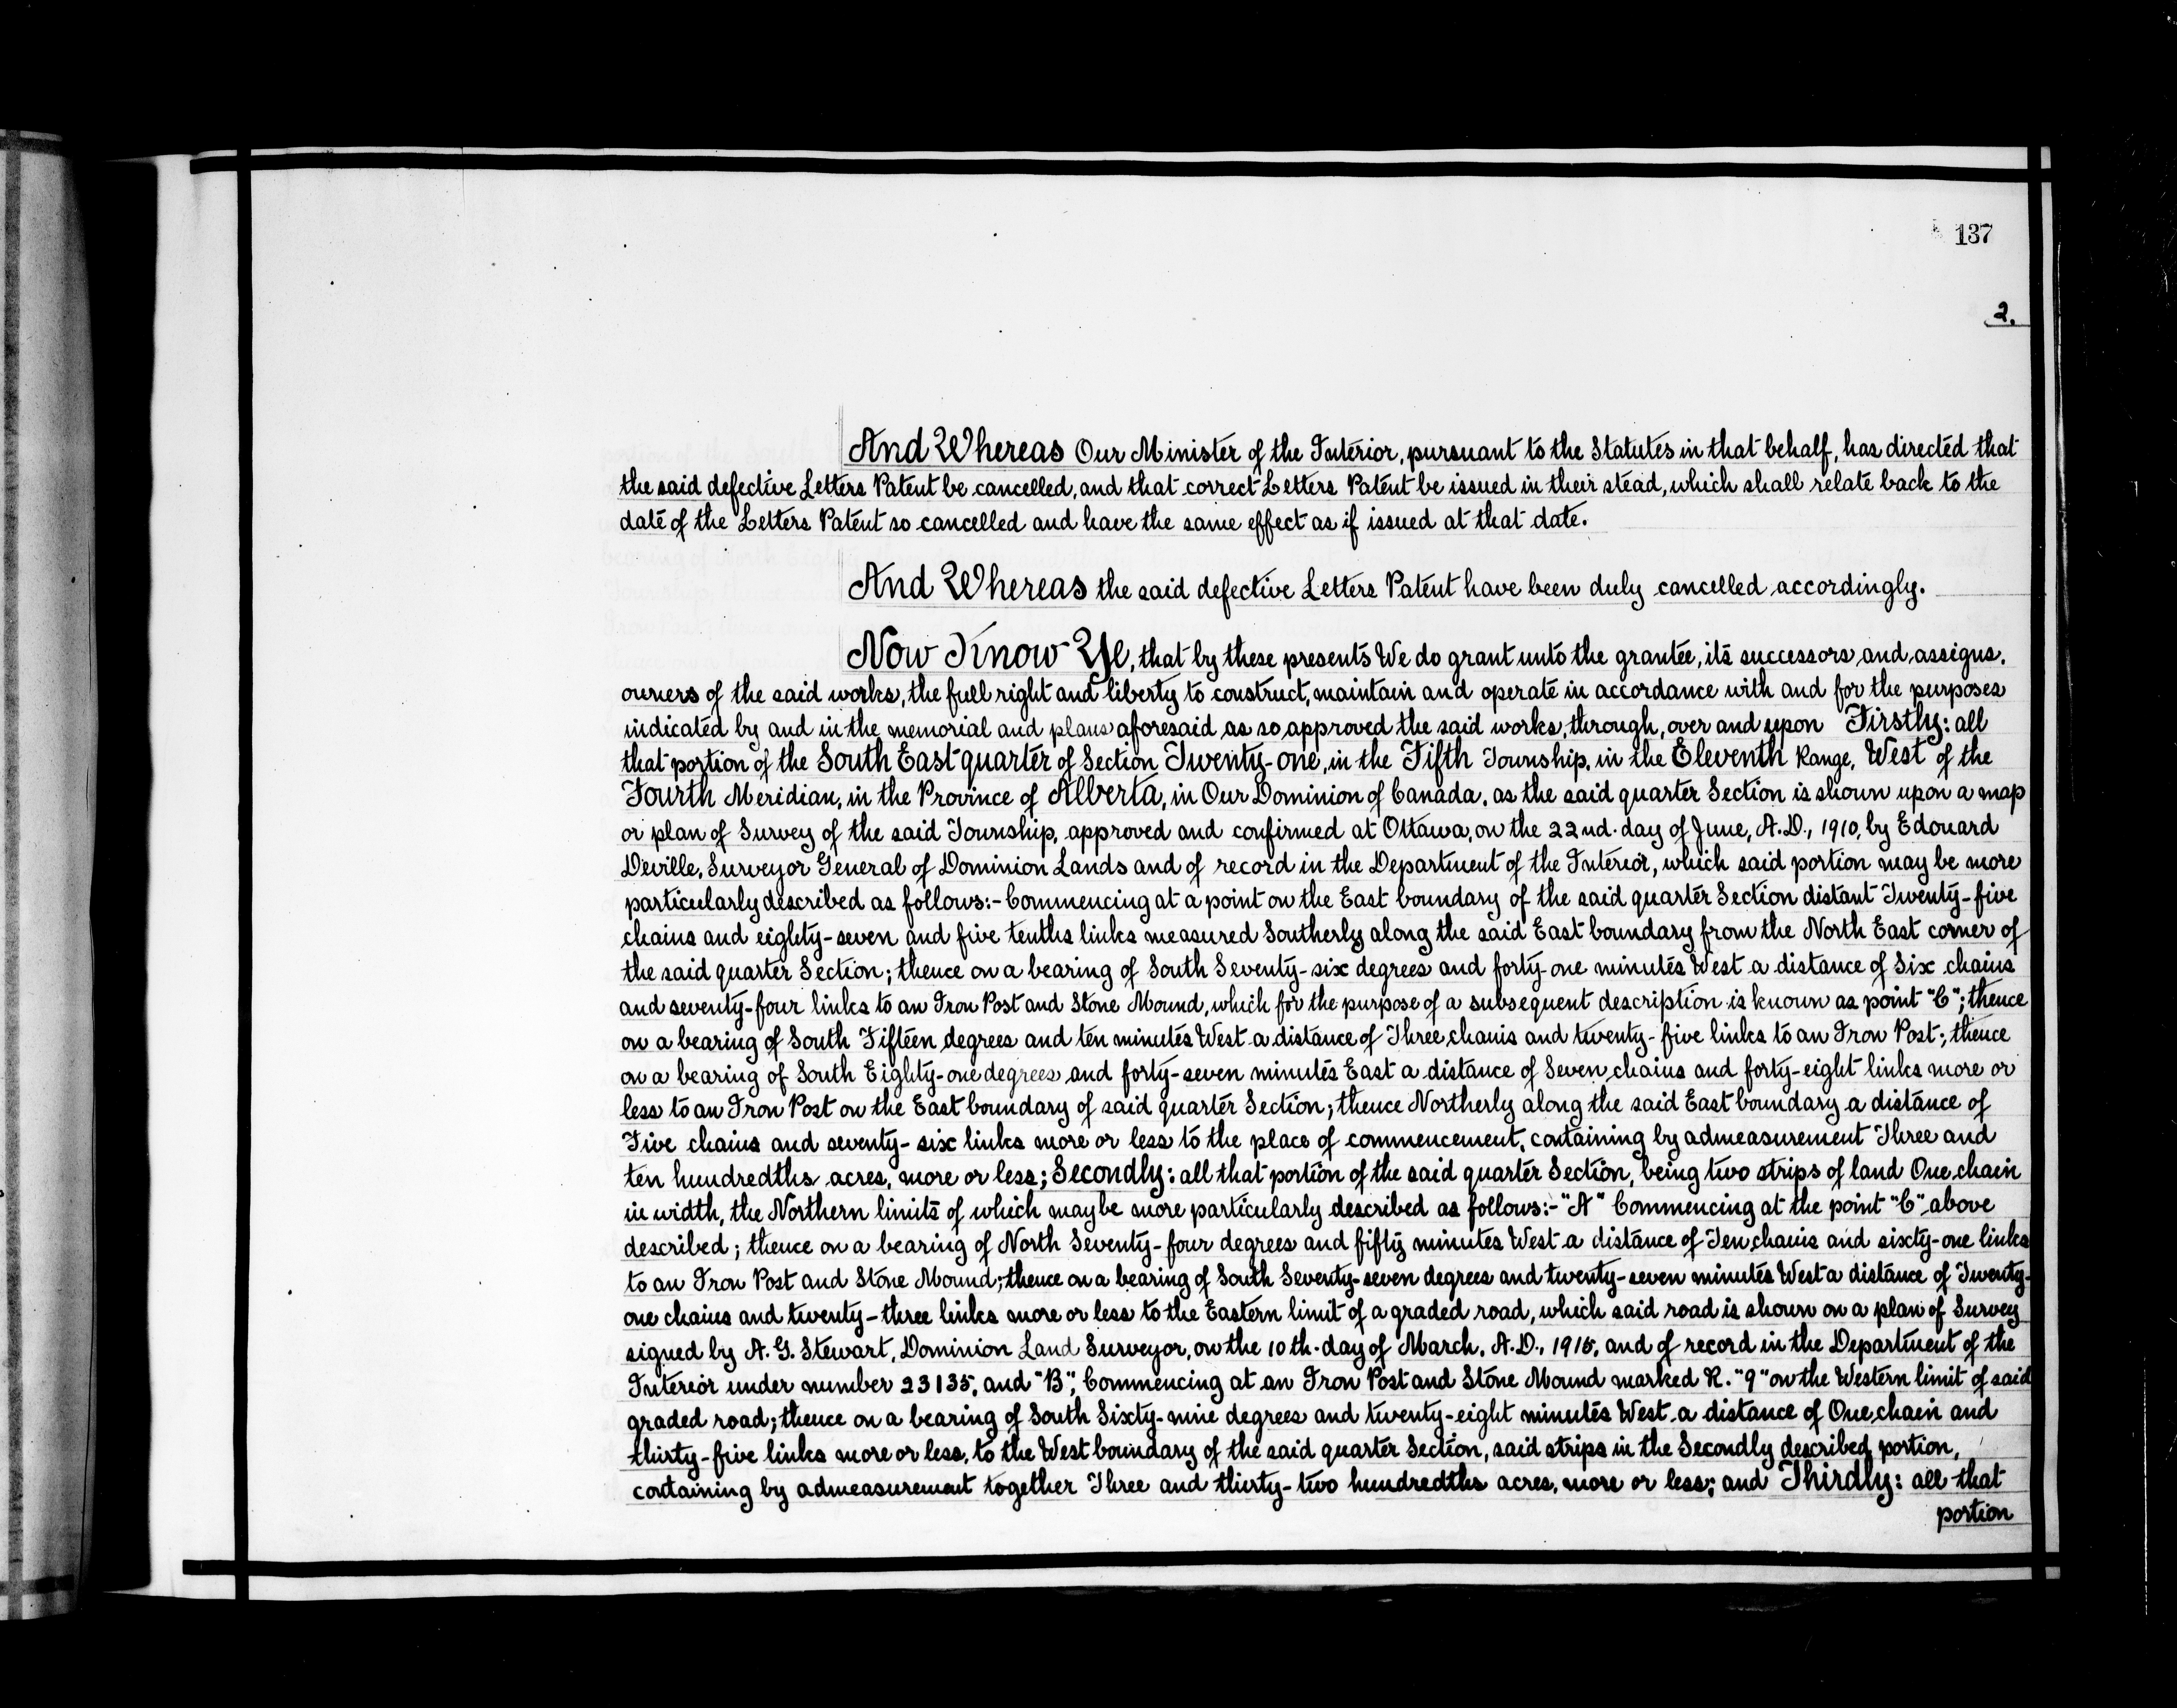 137
2.
And Whereas Our Minister of the Interior, pursuant to the Statutes in that behalf, has directed that
the said defective Letters Patent be cancelled, and that correct Letters Patent be issued in their stead, which shall relate back to the
date of the Letters Patent so cancelled and have the same effect as if issued at that date.
And Whereas the said defective Letters Patent have been duly cancelled accordingly.
Now Know Ye, that by these presents We do grant unto the grantee, its successors and assigns,
owners of the said works, the full right and liberty to construct, maintain and operate in accordance with and for the purposes
indicated by and in the memorial and plans aforesaid as so approved the said works, through, over and upon Firstly: all
that portion of the South East quarter of Section Twenty-one, in the Fifth Township, in the Eleventh Range, West of the
Fourth Meridian, in the Province of Alberta, in Our Dominion of Canada, as the said quarter Section is shown upon a map
or plan of Survey of the said Township, approved and confirmed at Ottawa, on the 22nd. day of June, A.D., 1910, by Edouard
Deville, Surveyor General of Dominion Lands and of record in the Department of the Interior, which said portion may be more
particularly described as follows:- Commencing at a point on the East boundary of the said quarter Section distant Twenty-five
chains and eighty-seven and five tenths links measured Southerly along the said East boundary from the North East corner of
the said quarter Section; thence on a bearing of South Seventy-six degrees and forty-one minutes West a distance of Six chains
and seventy-four links to an Iron Post and Stone Mound, which for the purpose of a subsequent description is known as point "C"; thence
on a bearing of South Fifteen degrees and ten minutes West a distance of Three chains and twenty-five links to an Iron Post; thence
on a bearing of South Eighty-one degrees and forty-seven minutes East a distance of Seven chains and forty-eight links more or
less to an Iron Post on the East boundary of said quarter Section; thence Northerly along the said East boundary a distance of
Five chains and seventy-six links more or less to the place of commencement, containing by admeasurement Three and
ten hundredths acres, more or less; Secondly: all that portion of the said quarter Section, being two strips of land One chain
in width, the Northern limits of which may be more particularly described as follows:- "A" Commencing at the point "C" above
described; thence on a bearing of North Seventy-four degrees and fifty minutes West a distance of Ten chains and sixty-one links
to an Iron Post and Stone Mound; thence on a bearing of South Seventy-seven degrees and twenty-seven minutes West a distance of Twenty-
one chains and twenty-three links more or less to the Eastern limit of a graded road, which said road is shown on a plan of Survey
signed by A. G. Stewart, Dominion Land Surveyor, on the 10th. day of March, A.D., 1915, and of record in the Department of the
Interior under number 23135, and "B", Commencing at an Iron Post and Stone Mound marked R. "9" on the Western limit of said
graded road; thence on a bearing of South Sixty-nine degrees and twenty-eight minutes West a distance of One chain and
thirty-five links more or less, to the West boundary of the said quarter Section, said strips in the Secondly described portion,
containing by admeasurement together Three and thirty-two hundredths acres, more or less; and Thirdly: all that
portion